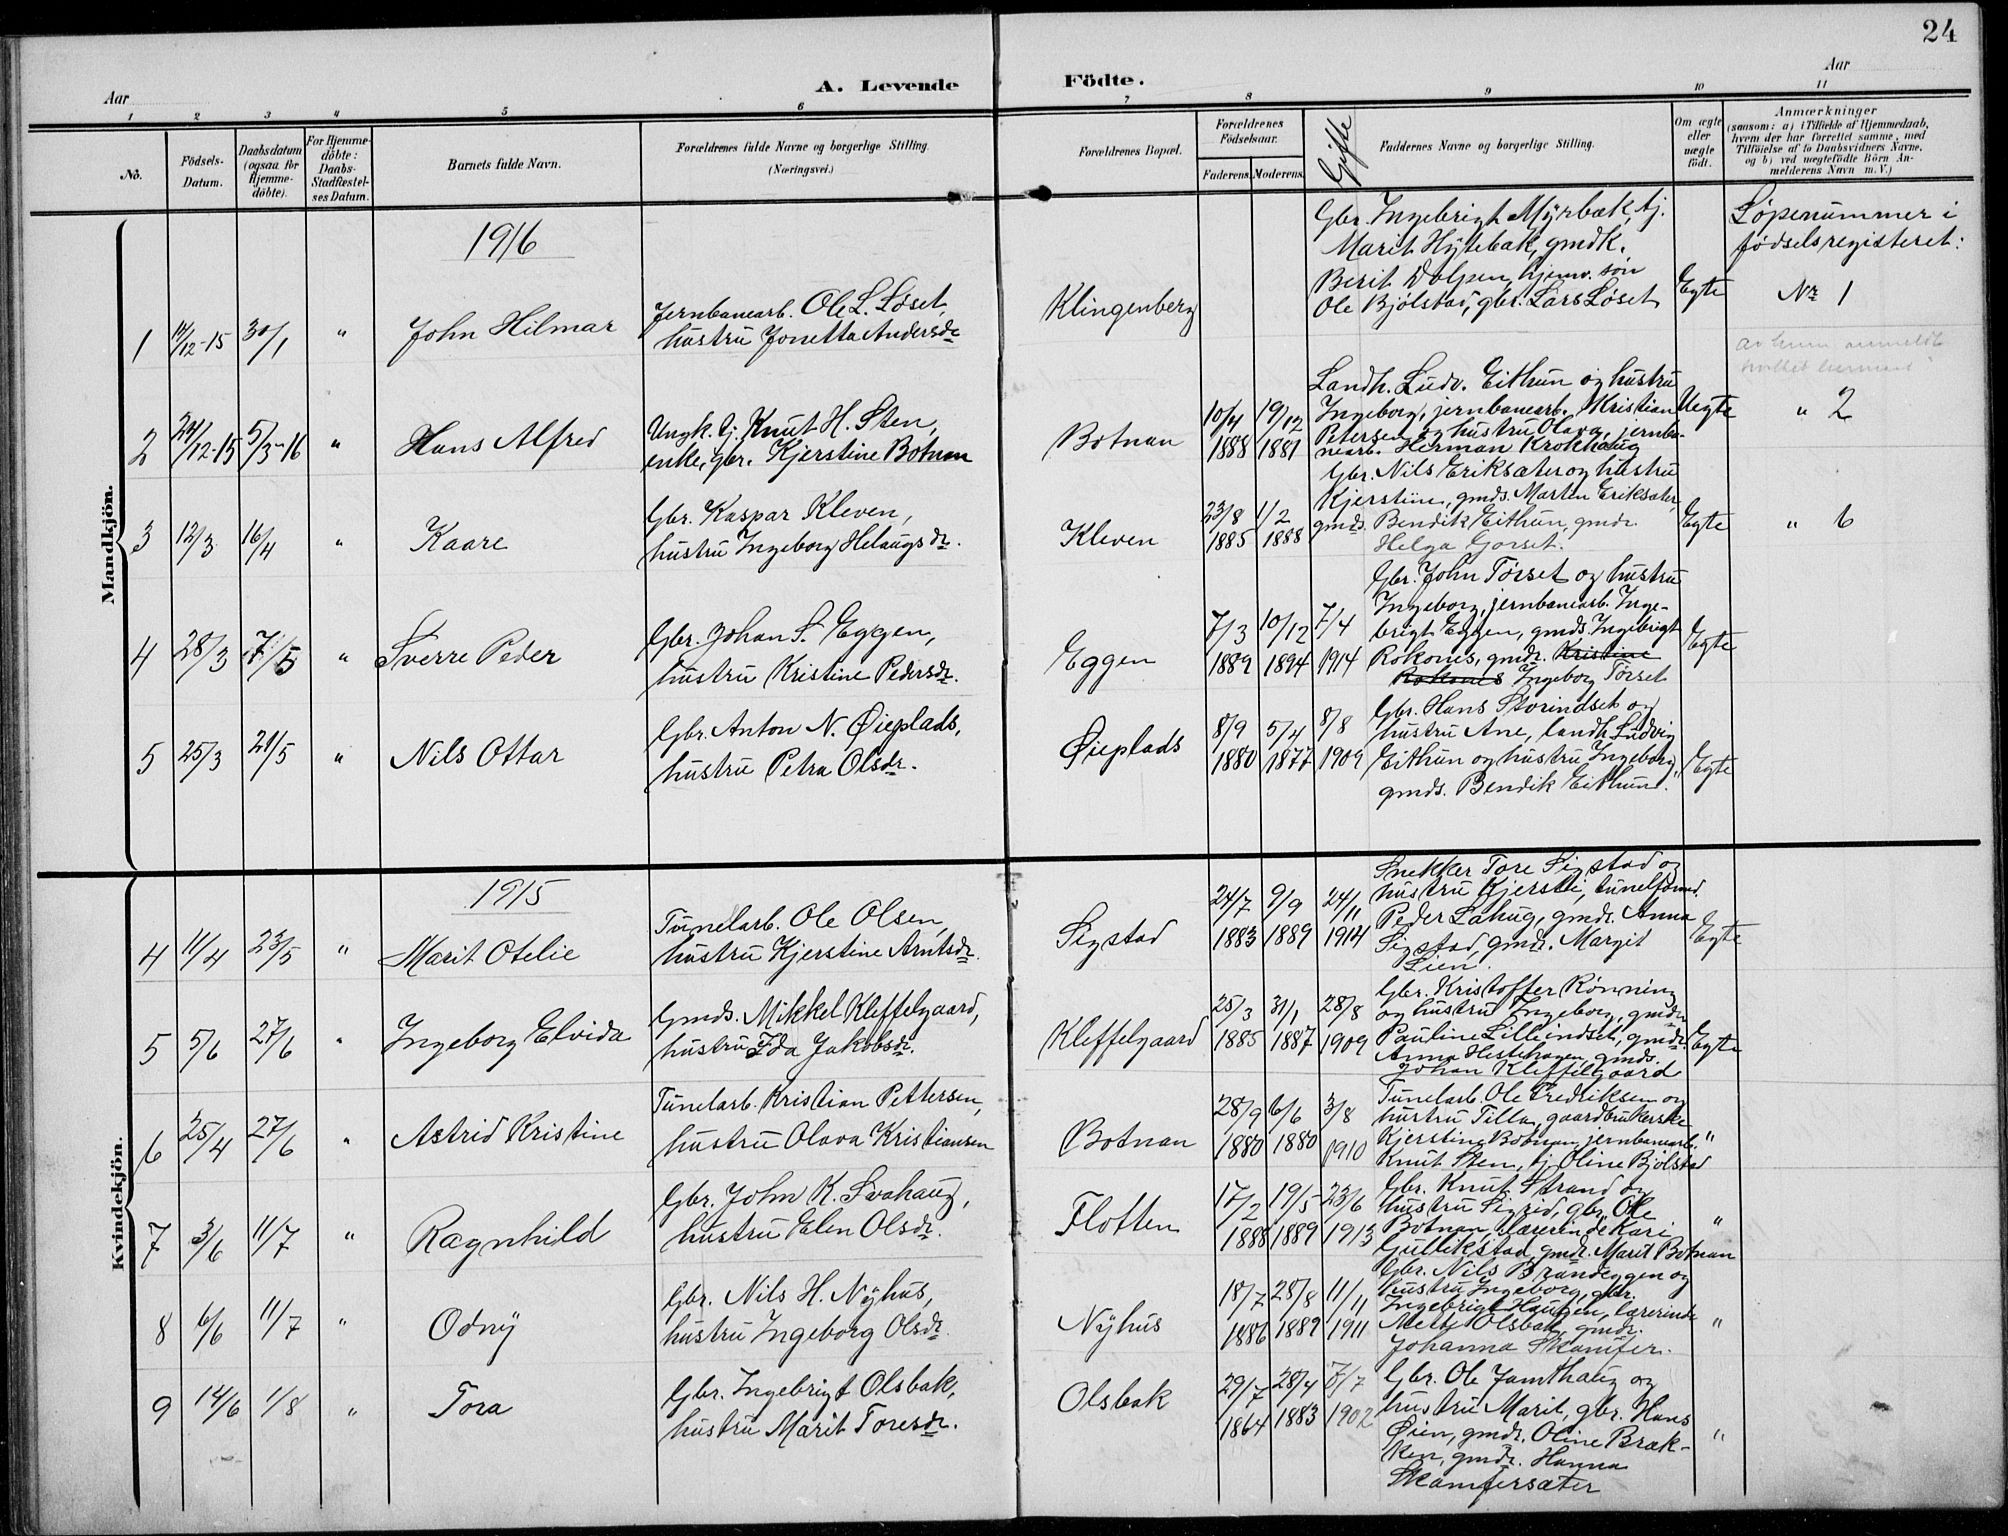 24
A. Levende Födte.
Aar
Aar
1 2 3 4 5 6 7 8 9 10 11
No.
Födsels-Datum.
Daabsdatum (ogsaa for Hjemme-döbte).
For Hjemme-döbte: Daabs-Stadfæstel-ses Datum.
Barnets fulde Navn.
Forældrenes fulde Navne og borgerlige Stilling.
(Næringsvei.)
Forældrenes Bopæl.
Forældrenes Födselsaar.
Faderens. Moderens.
Gifte
Faddernes Navne og borgerlige Stilling.
Om ægte eller uægte født.
Anmærkninger
(saasom: a) i Tilfælde af Hjemmedaab,
hvem der har forrettet samme, med
Tilföielse af to Daabsvidners Navne,
og b) ved uægtefödte Börn An-
melderens Navn m. V.)
Mandkjön.
1916
Løpenummer i
fødselsregisteret:
1 11/12-15 30/1 " John Hilmar
Jernbanearb. Ole L. Løset,
hustru Jonetta Andersdr
Klingenberg
Gbr. Ingebrigt Myrbæk, tj.
Marit Hyttebak, gmdk.
Berit Dolpen, hjemv. søn
Ole Bjølstad, gbr. Lars Løset
Egte
Nr 1
2 24/12-15 5/3-16 " Hans Alfred
Ungk. tj. Knut H. Sten,
enke, gbr. Kjerstine Botnan
Botnan
10/4 1888 19/12 1881
Landh. Ludv. Eithun og hustru
Ingeborg, jernbanearb. Kristian
Petersen og hustru Olava, jernba-
nearb. Herman Krokhaug
Uegte
" 2
3 12/3 16/4 " Kaare
Gbr. Kaspar Kleven,
hustru Ingeborg Helaugsdr.
Kleven
23/8 1885 1/2 1888
Gbr. Nils Eriksæter og hustru
Kjerstine, gmds. Martin Eriksæter,
gmds. Bendik Eithun, gmdr.
Helga Gorset.
Egte
" 6
4 28/3 7/5 " Sverre Peder
Gbr. Johan S. Eggen,
hustru Kristine Pedersdr.
Eggen
7/3 1889 10/12 1894 7/4 1914
Gbr. John Tørset og hustru
Ingeborg, jernbanearb. Inge-
brigt Eggen, gmds. Ingebrigt
Rokones, gmdr. Kristine
Rokones Ingeborg Tørset
Egte
5 25/3 21/5 " Nils Ottar
Gbr. Anton N. Øieplads,
hustru Petra Olsdr.
Øieplads
8/9 1880 5/4 1877 8/8 1909
Gbr. Hans Storindset og
hustru Ane, landh. Ludvig
Eithun og hustru Ingeborg,
gmds. Bendik Eithun.
Egte
Kvindekjön.
1915
4 11/4 23/5 " Marit Otelie
Tunelarb. Ole Olsen,
hustru Kjerstine Arntsdr.
Sigstad
24/7 1883 9/9 1889 24/11 1914
Snekker Tore Sigstad og
hustru Kjersti, tunelformd.
Peder Lahug, gmdr. Anna
Sigstad, gmdr. Margit
Lien.
Egte
5 5/6 27/6 " Ingeborg Elvida
Gmds. Mikkel Kleffelgaard,
hustru Ida Jakobsdr.
Kleffelgaard
25/3 1885 31/1 1887 28/8 1909
Gbr. Kristoffer Rønning
og hustru Ingeborg, gmdr.
Pauline Lilleindset, gmdr.
Anna Hestehagen, gmds.
Johan Kleffelgaard
Egte
6 25/4 27/6 " Astrid Kristine
Tunelarb. Kristian Pettersen,
hustru Olava Kristiansen
Botnan
28/9 1880 6/6 1880 3/8 1910
Tunelarb. Ole Fredriksen og
hustru Tilla, gaardbrukerske
Kjerstine Botnan, jernbanearb.
Knut Sten, tj. Oline Bjølstad
"
7 3/6 11/7 " Ragnhild
Gbr. John K. Svahaug,
hustru Elen Olsdr.
Flotten
17/2 1888 19/5 1889 23/6 1913
Gbr. Knut Strand og
hustru Sigrid, gbr. Ole
Botnan, lærerinde Kari
Gullikstad, gmdr. Marit Botnan
"
8 6/6 11/7 " Odny
Gbr. Nils H. Nyhus,
hustru Ingeborg Olsdr.
Nyhus
18/7 1886 28/8 1889 11/11 1911
Gbr. Nils Brandeggen og
hustru Ingeborg, gbr.
Ingebrigt Haugen, lærerinde
Mette Olsbak, gmdr.
Johanna Skamfer.
"
9 14/6 1/8 " Tora
Gbr. Ingebrigt Olsbak,
hustru Marit Toresdr.
Olsbak
29/7 1864 28/4 1883 1902
Gbr. Ole Jamthaug og
hustru Marit, gbr. Hans
Øien, gmdr. Oline Bræk-
ken, gmdr. Hanna
Skamfersæter
"